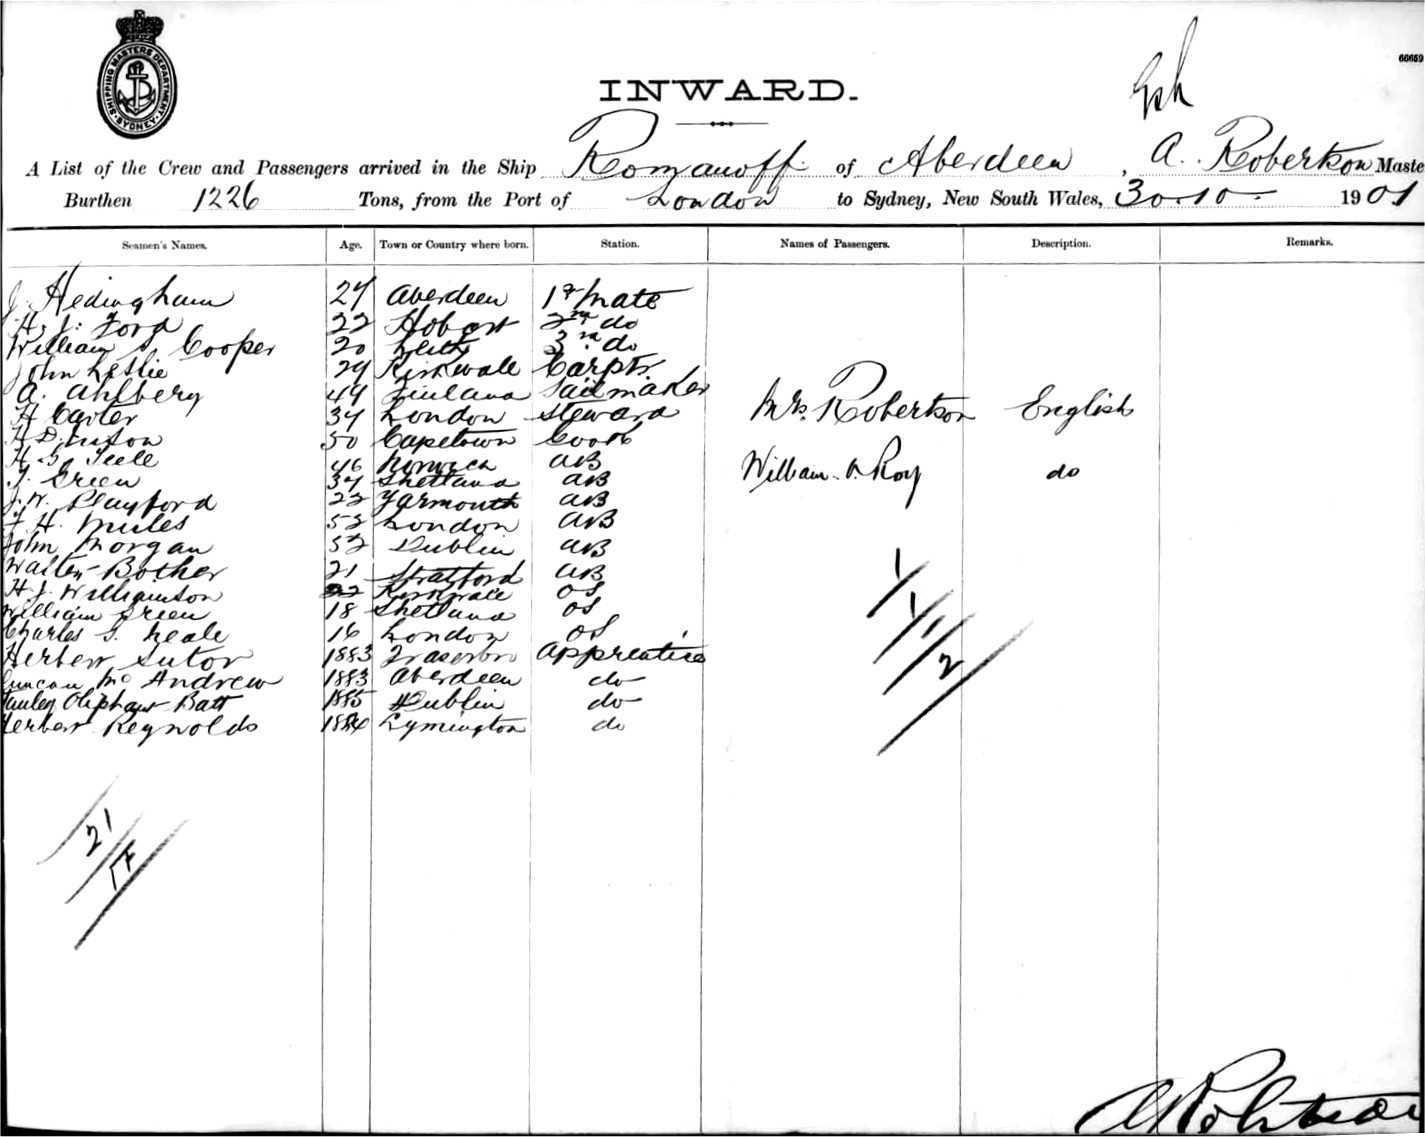 SHIPPING MASTERS DEPARTMENT SYDNEY
66659
INWARD.
A List of the Crew and Passengers arrived in the Ship Romanoff of Aberdeen, A. Robertson Maste
Burthen 1226 Tons, from the Port of London to Sydney, New South Wales, 30.10 - 1901
Seamen's Names. Age. Town or Country where born. Station. Names of Passengers. Description. Remarks.
J. Hedingham 27 Aberdeen 1st Mate
H. J. Ford 22 Hobart 2nd do
William S. Cooper 20 Leith 3rd do
John Leslie 29 Kirkwale Carptr
A. Ahlberg 49 Finland Sailmaker
H Carter 37 London Steward Mrs. Robertson English
50 Capetown Cook
H. G. Teele 46 Norwich AB William Roy do
Green 37 Shetland AB
J. W. Playford 22 Yarmouth AB
F. H. Miles 52 London AB
John Morgan 52 Dublin AB
Walter Bother 21 Stratford AB
H. J. Williamson 22 OS
William Green 18 Shetland OS
Charles G. Neale 16 London OS
Herbert Sutor 1883 Fraserbro Apprentice
uncan Mc Andrew 1883 Aberdeen do
tanley Oliphant Batt 1885 Dublin do
Herbert Reynolds 1884 Lymington do
1
1
1
2
21
17